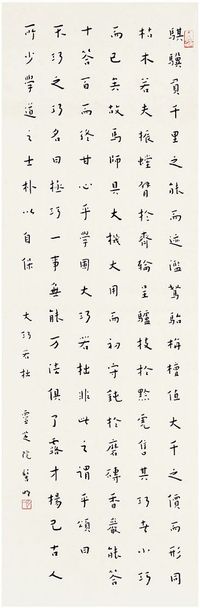 騏驥負千里之能而迹濫駑駘栴檀值大千之價而形同
枯木若夫振螳臂於齊輪呈驢技於黔虎售其巧者小巧
而已矣故馬師具大機大用而初守鈍於磨磚香嚴能答
十答百而終甘心乎學圃大巧若拙非此之謂乎頌曰
不巧之巧名曰極巧一事無能万法俱了露才揚己古人
所少學道之士朴以自保 大巧若拙 靈芝院